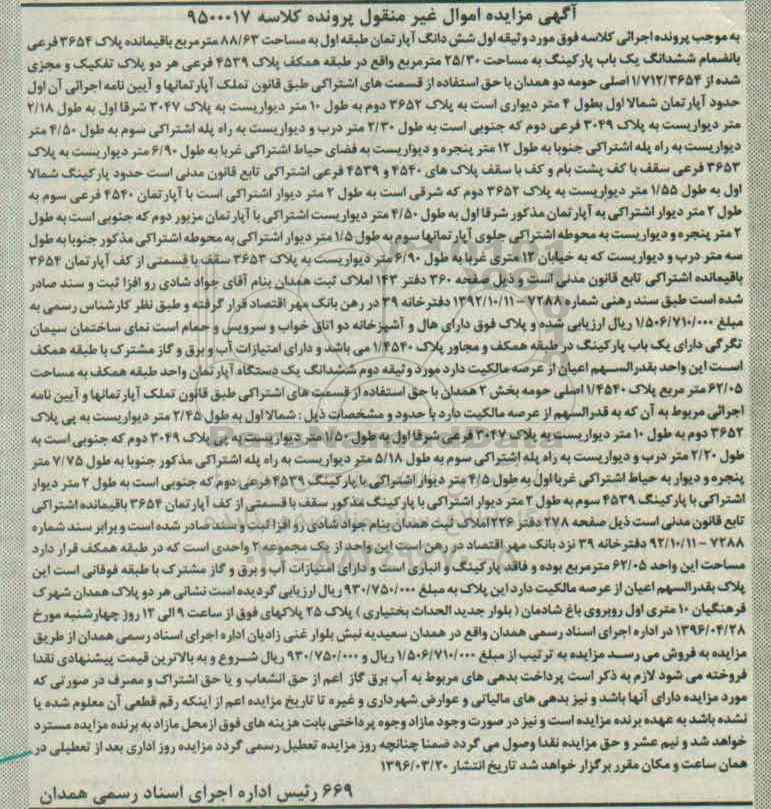 آگهی مزایده اموال غیر منقول پرونده کلاسه ۹۵۰۰۰۱۷
به موجب پرونده اجرائی کلاسه فوق مورد وثیقه اول شش دانگ آپارتمان طبقه اول به مساحت ۸۸/۶۳ مترمربع باقیمانده پلاک ۳۶۵۴ فرعی
بانضمام ششدانگ یک باب پارکینگ به مساحت ۲۵/۳۰ مترمربع واقع در طبقه همکف پلاک ۴۵۳۹ فرعی هر دو پلاک تفکیک و مجزی
شده از ۱/۷۱۲/۳۶۵۴ اصلی حومه دو همدان با حق استفاده از قسمت های اشتراکی طبق قانون تملک آپارتمانها و آیین نامه اجرائی آن اول
حدود آپارتمان شمالا اول بطول ۴ متر دیواری است به پلاک ۳۶۵۲ دوم به طول ۱۰ متر دیواریست به پلاک ۳۰۴۷ شرقا اول به طول ۲/۱۸
متر دیواریست به پلاک ۳۰۴۹ فرعی دوم که جنوبی است به طول ۲/۳۰ متر درب و دیواریست به راه پله اشتراکی سوم به طول ۴/۵۰ متر
دیواریست به راه پله اشتراکی جنوبا به طول ۱۲ متر پنجره و دیواریست به فضای حیاط اشتراکی غربا به طول ۶/۹۰ متر دیواریست به پلاک
۳۶۵۳ فرعی سقف با کف پشت بام و کف با سقف پلاک های ۴۵۴۰ و ۴۵۳۹ فرعی اشتراکی تابع قانون مدنی است حدود پارکینگ شمالا
اول به طول ۱/۵۵ متر دیواریست به پلاک ۳۶۵۲ دوم که شرقی است به طول ۲ متر دیوار اشتراکی است با آپارتمان ۴۵۴۰ فرعی سوم به
طول ۲ متر دیوار اشتراکی به آپارتمان مذکور شرقا اول به طول ۴/۵۰ متر دیواریست اشتراکی با آپارتمان مزبور دوم که جنوبی است به طول
۲ متر پنجره و دیواریست به محوطه اشتراکی جلوی آپارتمانها سوم به طول ۱/۵ متر دیوار اشتراکی به محوطه اشتراکی مذکور جنوبا به طول
سه متر درب و دیواریست که به خیابان ۱۲ متری غربا به طول ۶/۹۰ متر دیواریست به پلاک ۳۶۵۳ سقف با قسمتی از کف آپارتمان ۳۶۵۴
باقیمانده اشتراکی تابع قانون مدنی است و ذیل صفحه ۳۶۰ دفتر ۱۴۳ املاک ثبت همدان بنام آقای جواد شادی رو افزا ثبت و سند صادر
شده است طبق سند رهنی شماره ۷۲۸۸ – ۱۳۹۲/۱۰/۱۱ دفترخانه ۳۹ در رهن بانک مهر اقتصاد قرار گرفته و طبق نظر کارشناس رسمی به
مبلغ ۱/۵۰۶/۷۱۰/۰۰۰ ریال ارزیابی شده و پلاک فوق دارای هال و آشپزخانه دو اتاق خواب و سرویس و حمام است نمای ساختمان سیمان
تگرگی دارای یک باب پارکینگ در طبقه همکف و مجاور پلاک ۱/۴۵۴۰ می باشد و دارای امتیازات آب و برق و گاز مشترک با طبقه همکف
است این واحد بقدرالسهم اعیان از عرصه مالکیت دارد مورد وثیقه دوم ششدانگ یک دستگاه آپارتمان واحد طبقه همکف به مساحت
۶۲/۰۵ متر مربع پلاک ۱/۴۵۴۰ اصلی حومه بخش ۲ همدان با حق استفاده از قسمت های اشتراکی طبق قانون تملک آپارتمانها و آیین نامه
اجرائی مربوط به آن که به قدرالسهم از عرصه مالکیت دارد با حدود و مشخصات ذیل : شمالا اول به طول ۲/۴۵ متر دیواریست به پی پلاک
۳۶۵۲ دوم به طول ۱۰ متر دیواریست به پلاک ۳۰۴۷ فرعی شرقا اول به طول ۱/۵۰ متر دیواریست به پی پلاک ۳۰۴۹ دوم که جنوبی است به
طول ۲/۲۰ متر درب و دیواریست به راه پله اشتراکی سوم به طول ۵/۱۸ متر دیواریست به راه پله اشتراکی مذکور جنوبا به طول ۷/۷۵ متر
پنجره و دیوار به حیاط اشتراکی غربا اول به طول ۴/۵ متر دیوار اشتراکی با پارکینگ ۴۵۳۹ فرعی دوم که جنوبی است به طول ۲ متر دیوار
اشتراکی با پارکینگ ۴۵۳۹ سوم به طول ۲ متر دیوار اشتراکی با پارکینگ مذکور سقف با قسمتی از کف آپارتمان ۳۶۵۴ باقیمانده اشتراکی
تابع قانون مدنی است ذیل صفحه ۲۷۸ دفتر ۲۲۶ املاک ثبت همدان بنام جواد شادی رو افزا ثبت و سند صادر شده است و برابر سند شماره
۷۲۸۸ – ۹۲/۱۰/۱۱ دفترخانه ۳۹ نزد بانک مهر اقتصاد در رهن است این واحد از یک مجموعه ۲ واحدی است که در طبقه همکف قرار دارد
مساحت این واحد ۶۲/۰۵ مترمربع بوده و فاقد پارکینگ و انباری است و دارای امتیازات آب و برق و گاز مشترک با طبقه فوقانی است این
پلاک بقدرالسهم اعیان از عرصه مالکیت دارد این پلاک به مبلغ ۹۳۰/۷۵۰/۰۰۰ ریال ارزیابی گردیده است نشانی هر دو پلاک همدان شهرک
فرهنگیان ۱۰ متری اول روبروی باغ شادمان ( بلوار جدید الحداث بختیاری ) پلاک ۲۵ پلاکهای فوق از ساعت ۹ الی ۱۲ روز چهارشنبه مورخ
۱۳۹۶/۰۴/۲۸ در اداره اجرای اسناد رسمی همدان واقع در همدان سعیدیه نبش بلوار غنی زادیان اداره اجرای اسناد رسمی همدان از طریق
مزایده به فروش می رسد مزایده به ترتیب از مبلغ ۱/۵۰۶/۷۱۰/۰۰۰ ریال و ۹۳۰/۷۵۰/۰۰۰ ریال شروع و به بالاترین قیمت پیشنهادی نقدا
فروخته می شود لازم به ذکر است پرداخت بدهی های مربوط به آب برق گاز اعم از حق انشعاب و یا حق اشتراک و مصرف در صورتی که
مورد مزایده دارای آنها باشد و نیز بدهی های مالیاتی و عوارض شهرداری و غیره تا تاریخ مزایده اعم از اینکه رقم قطعی آن معلوم شده یا
نشده باشد به عهده برنده مزایده است و نیز در صورت وجود مازاد وجوه پرداختی بابت هزینه های فوق ازمحل مازاد به برنده مزایده مسترد
خواهد شد و نیم عشر و حق مزایده نقدا وصول می گردد ضمنا چنانچه روز مزایده تعطیل رسمی گردد مزایده روز اداری بعد از تعطیلی در
همان ساعت و مکان مقرر برگزار خواهد شد تاریخ انتشار ۱۳۹۶/۰۳/۲۰
۶۶۹ رئیس اداره اجرای اسناد رسمی همدان